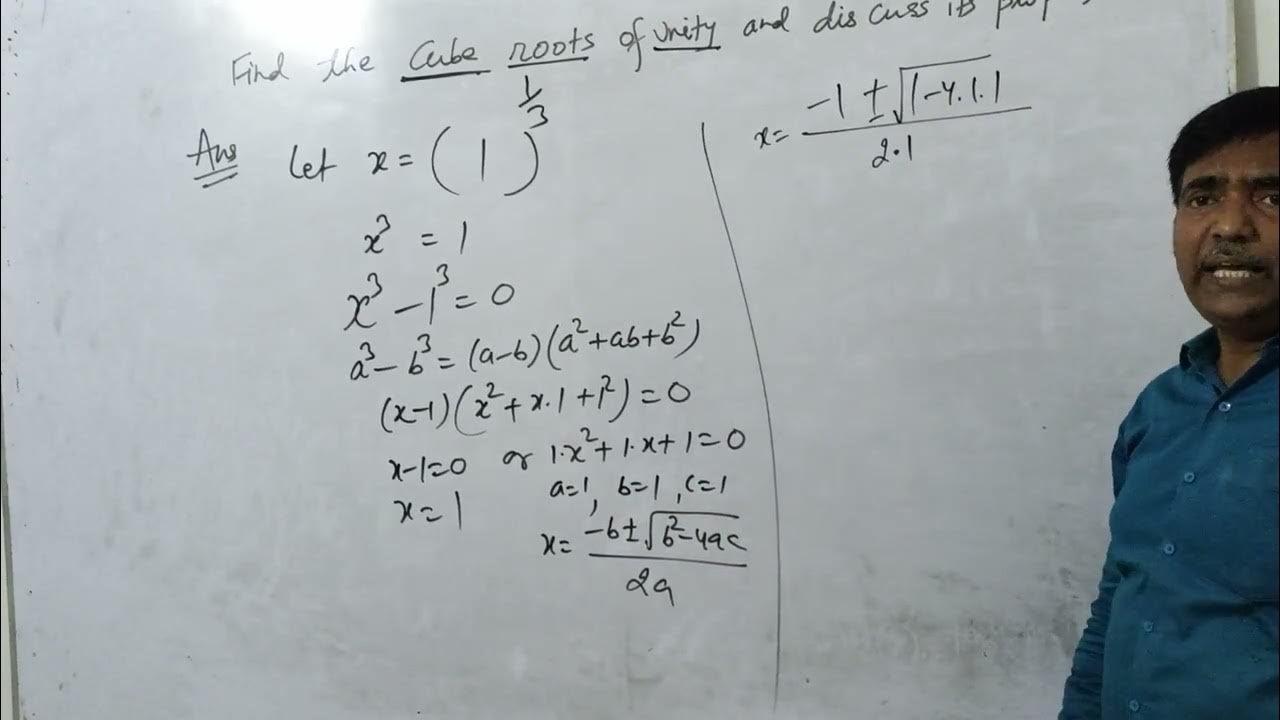 Find the Cube roots of unity and discuss its
Ans Let x = ( 1 )^1/3
x³ = 1
x³ - 1³ = 0
a³ - b³ = (a-b)(a²+ab+b²)
(x-1)(x²+x.1+1²) = 0
x-1=0 or 1.x²+1.x+1=0
x = 1 a=1, b=1, c=1
x = (-b±√(b²-4ac))/2a
x = (-1 ± √(1-4.1.1))/2.1